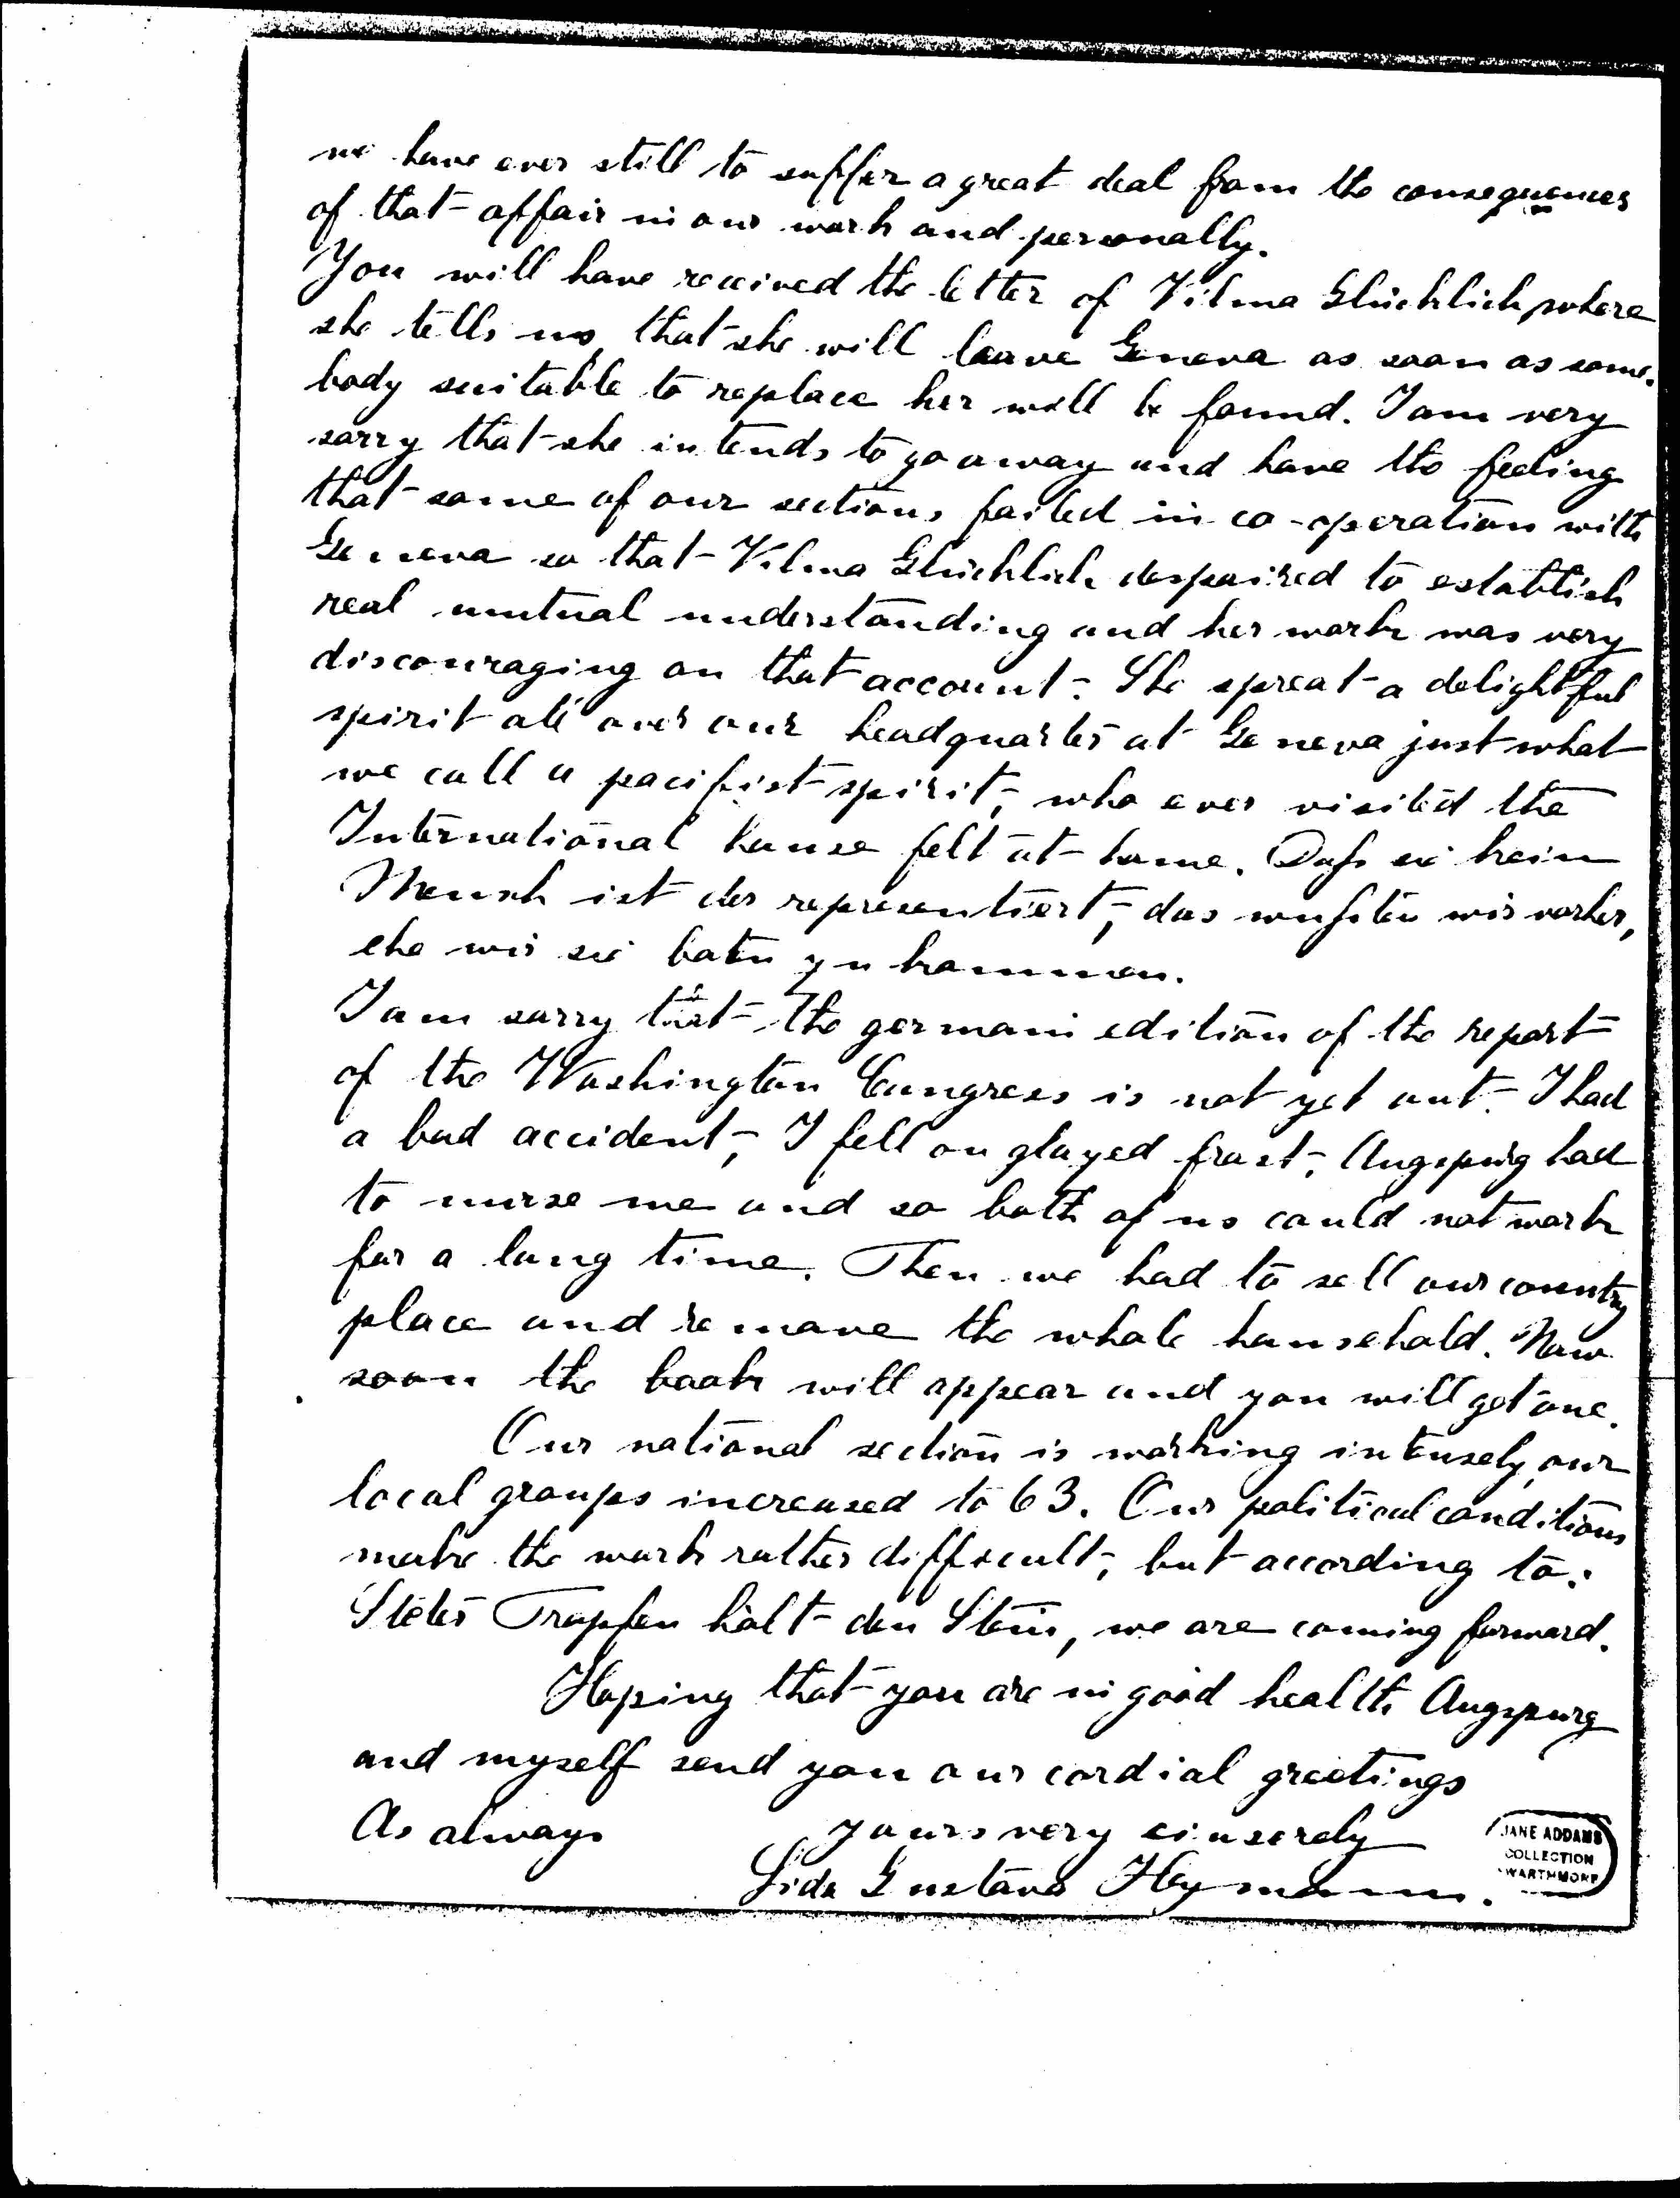 we have ever still to suffer a great deal from the consequences
of that affair in our work and personally.
You will have received the letter of Vilma Glücklich, where
she tells us, that she will leave Geneva as soon as some-
body suitable to replace her will be found. I am very
sorry that she intends to go away and have the feeling
that some of our sections failed in co-operation with
Geneva so that Vilma Glücklich despaired to establish
real mutual understanding and her work was very
discouraging on that account. She spreat a delightful
spirit all over our headquarter at Geneva just what
we call a pacifist spirit, who ever visited the
International house felt at home. Daß sie kein
Mensch ist der representiert, das wußten wir vorher,
ehe wir sie baten zu kommen.
I am sorry that the german edition of the report
of the Washington Congress is not yet out. I had
a bad accident, I fell on glazed frost, Augspurg had
to nurse me and so both of us could not work
for a long time. Then we had to sell our country
place and remove the whole household. Now
soon the book will appear and you will get one.
Our national section is working intensely, our
local groups increased to 63. Our political conditions
make the work rather difficult, but according to:
Steter Tropfen hölt den Stein, we are coming forward.
Hoping that you are in good health Augspurg
and myself send you our cordial greetings
As always yours very sinserely
Lida Gustava Heymann.
JANE ADDAMS
COLLECTION
SWARTHMORE